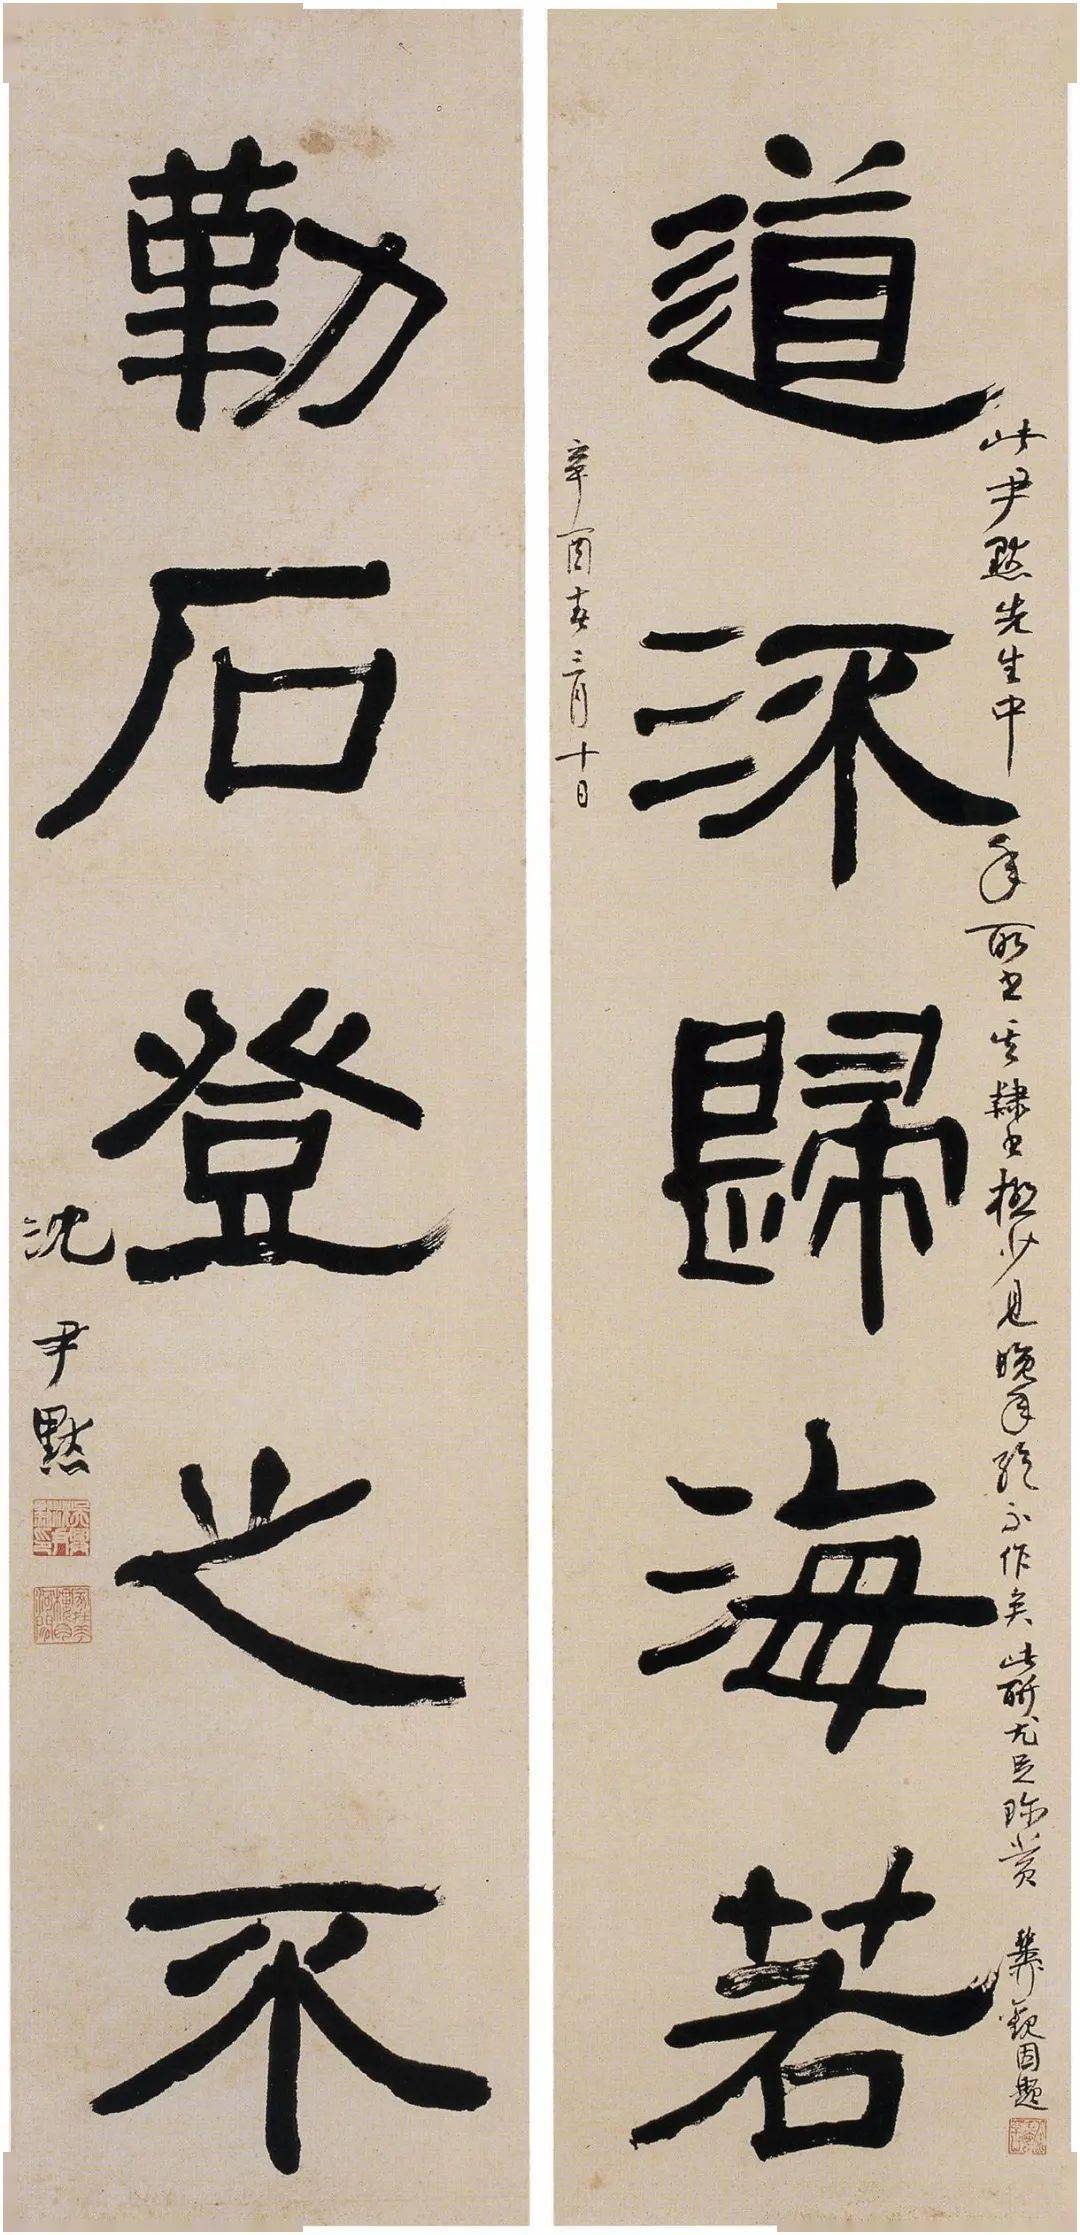 道㳅歸海若
此尹默先生中年所書其隸書極少見晚年絕不作矣此聯尤足珍賞 觀因題
辛酉春三月十日
勒石登之不
沈尹默